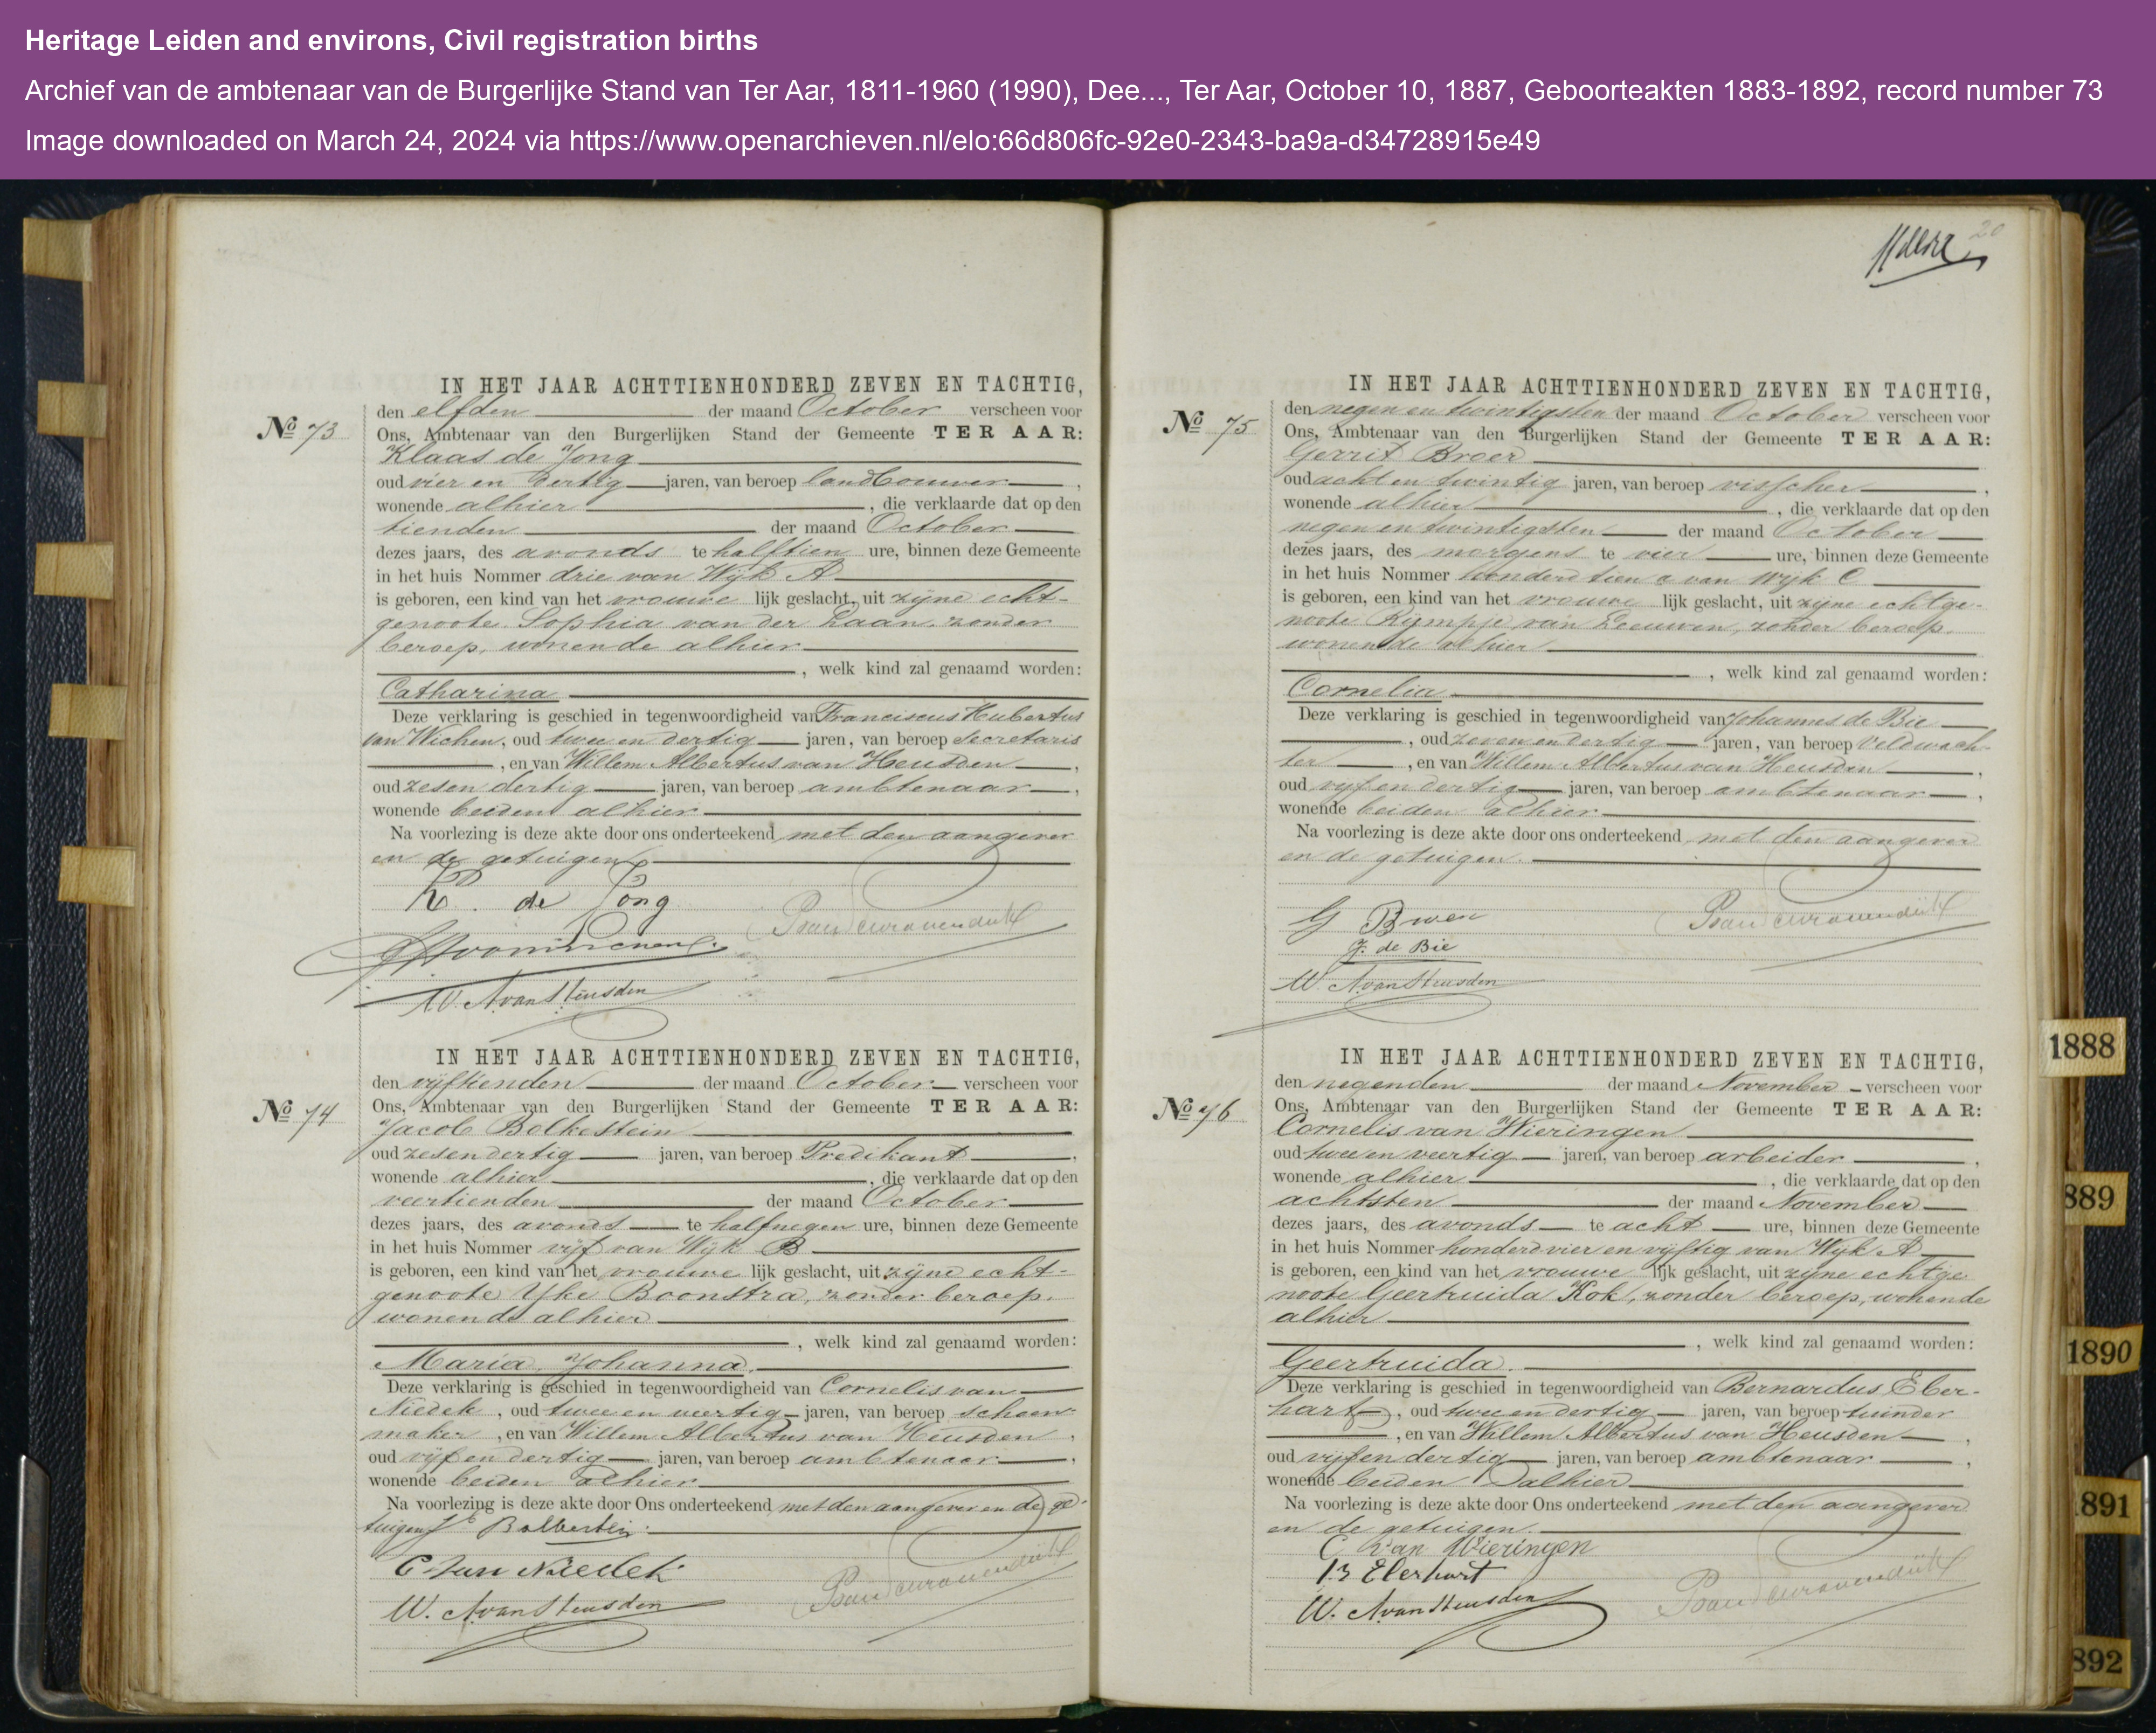 Heritage Leiden and environs, Civil registration births
Archief van de ambtenaar van de Burgerlijke Stand van Ter Aar, 1811-1960 (1990), Dee..., Ter Aar, October 10, 1887, Geboorteakten 1883-1892, record number 73
Image downloaded on March 24, 2024 via https://www.openarchieven.nl/elo:66d806fc-92e0-2343-ba9a-d34728915e49
IN HET JAAR ACHTTIENHONDERD ZEVEN EN TACHTIG,
den elfden der maand October verscheen voor
No 73 Ons, Ambtenaar van den Burgerlijken Stand der Gemeente TER AAR:
Klaas de Jong
oud vier en dertig jaren, van beroep landbouwer,
wonende alhier, die verklaarde dat op den
tienden der maand October
dezes jaars, des avonds te halftien ure, binnen deze Gemeente
in het huis Nommer drie van Wijk A
is geboren, een kind van het vrouwe lijk geslacht, uit zijne echt-
genoote Sophia van der Laan, zonder
beroep, wonende alhier
, welk kind zal genaamd worden:
Catharina
Deze verklaring is geschied in tegenwoordigheid van Franciscus Hubertus
van Wichen, oud twee en dertig jaren, van beroep Secretaris
, en van Willem Albertus van Heusden,
oud zesen dertig jaren, van beroep ambtenaar,
wonende beiden alhier
Na voorlezing is deze akte door ons onderteekend met den aangever
en de getuigen
K. de Jong
W. A. van Heusden
IN HET JAAR ACHTTIENHONDERD ZEVEN EN TACHTIG,
den vijftienden der maand October verscheen voor
No 74 Ons, Ambtenaar van den Burgerlijken Stand der Gemeente TER AAR:
Jacob Bolkestein
oud zesendertig jaren, van beroep Predikant,
wonende alhier, die verklaarde dat op den
veertienden der maand October
dezes jaars, des avonds te halfnegen ure, binnen deze Gemeente
in het huis Nommer vijf van Wijk B
is geboren, een kind van het vrouwe lijk geslacht, uit zijne echt-
genoote Yke Boonstra, zonder beroep,
wonende alhier
, welk kind zal genaamd worden:
Maria Johanna.
Deze verklaring is geschied in tegenwoordigheid van Cornelis van
Niedek, oud twee en veertig jaren, van beroep schoen-
maker, en van Willem Albertus van Heusden,
oud vijf en dertig jaren, van beroep ambtenaar,
wonende beiden alhier
Na voorlezing is deze akte door Ons onderteekend met den aangever en de ge-
tuigen
C van Niedek
W. A. van Heusden
20
IN HET JAAR ACHTTIENHONDERD ZEVEN EN TACHTIG,
den negen en twintigsten der maand October verscheen voor
No 75 Ons, Ambtenaar van den Burgerlijken Stand der Gemeente TER AAR:
Gerrit Broer
oud acht en twintig jaren, van beroep visscher,
wonende alhier, die verklaarde dat op den
negen en twintigsten der maand October
dezes jaars, des morgens te vier ure, binnen deze Gemeente
in het huis Nommer honderd tien c van Wijk C
is geboren, een kind van het vrouwe lijk geslacht, uit zijne echtge-
noote van Leeuwen, zonder beroep,
wonende alhier
, welk kind zal genaamd worden:
Cornelia
Deze verklaring is geschied in tegenwoordigheid van Johannes de Bie
, oud zeven en dertig jaren, van beroep Veldwach-
ter, en van Willem Albertus van Heusden,
oud vijf en dertig jaren, van beroep ambtenaar,
wonende beiden alhier
Na voorlezing is deze akte door ons onderteekend met den aangever
en de getuigen.
G
J. de Bie
W. A. van Heusden
IN HET JAAR ACHTTIENHONDERD ZEVEN EN TACHTIG,
den negenden der maand November verscheen voor
No 76 Ons, Ambtenaar van den Burgerlijken Stand der Gemeente TER AAR:
Cornelis van Wieringen
oud twee en veertig jaren, van beroep arbeider,
wonende alhier, die verklaarde dat op den
achtsten der maand November
dezes jaars, des avonds te acht ure, binnen deze Gemeente
in het huis Nommer honderd vier en vijftig van Wijk A
is geboren, een kind van het vrouwe lijk geslacht, uit zijne echtge-
noote Geertruida Kok, zonder beroep, wonende
alhier
, welk kind zal genaamd worden:
Geertruida.
Deze verklaring is geschied in tegenwoordigheid van Bernardus Eber-
hart, oud twee en dertig jaren, van beroep tuinder
, en van Willem Albertus van Heusden,
oud vijf en dertig jaren, van beroep ambtenaar,
wonende beiden alhier
Na voorlezing is deze akte door Ons onderteekend met den aangever
en de getuigen.
C van Wieringen
B Eberhart
W. A. van Heusden
1888
889
1890
1891
892